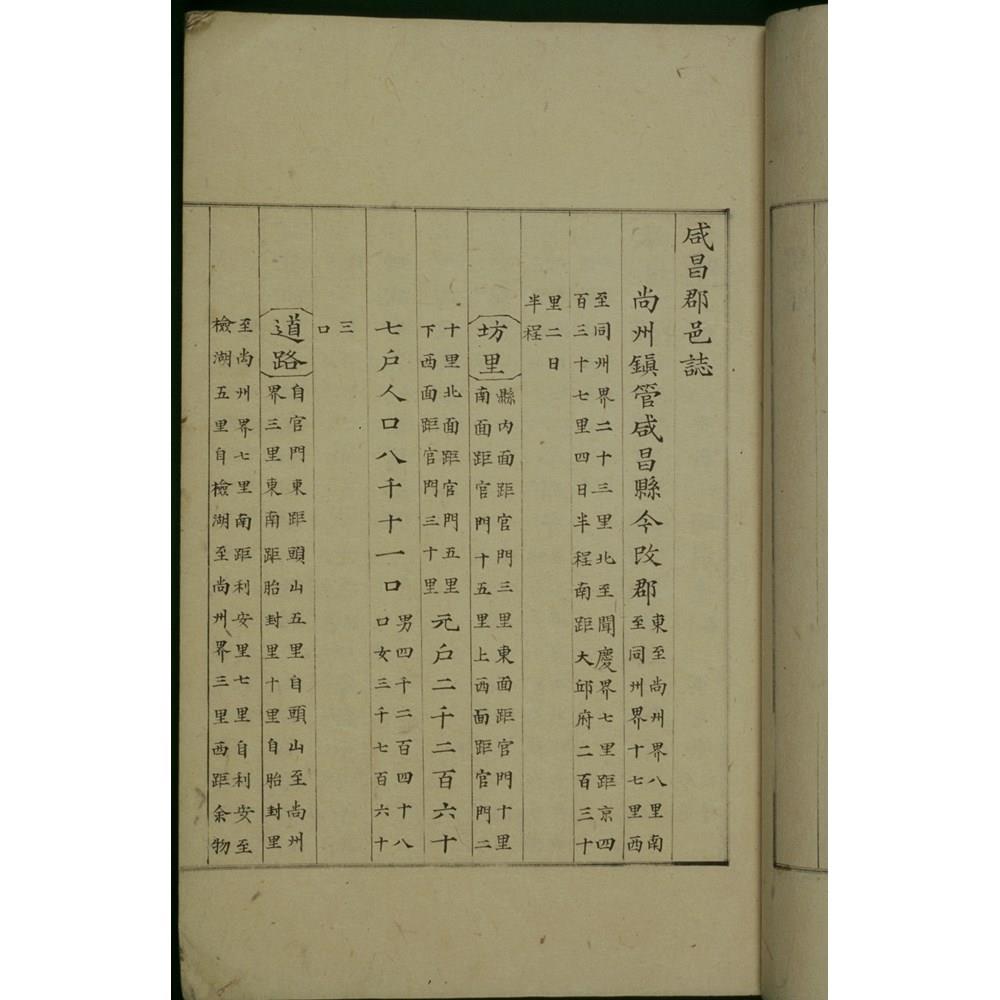 咸昌郡邑誌
尚州鎭管咸昌縣今改郡
東至尚州界八里南
至同州界十七里西
至同州界二十三里北至聞慶界七里距京四
百三十七里四日半程南距大邱府二百三十
里二日
半程
坊里
縣內面距官門三里東面距官門十里
南面距官門十五里上西面距官門二
十里北面距官門五里
下西面距官門三十里
元戶二千二百六十
七戶人口八千十一口
男四千二百四十八
口女三千七百六十
三
口
道路
自官門東距頭山五里自頭山至尚州
界三里東南距胎封里十里自胎封里
至尚州界七里南距利安里七里自利安至
檢湖五里自檢湖至尚州界三里西距余物